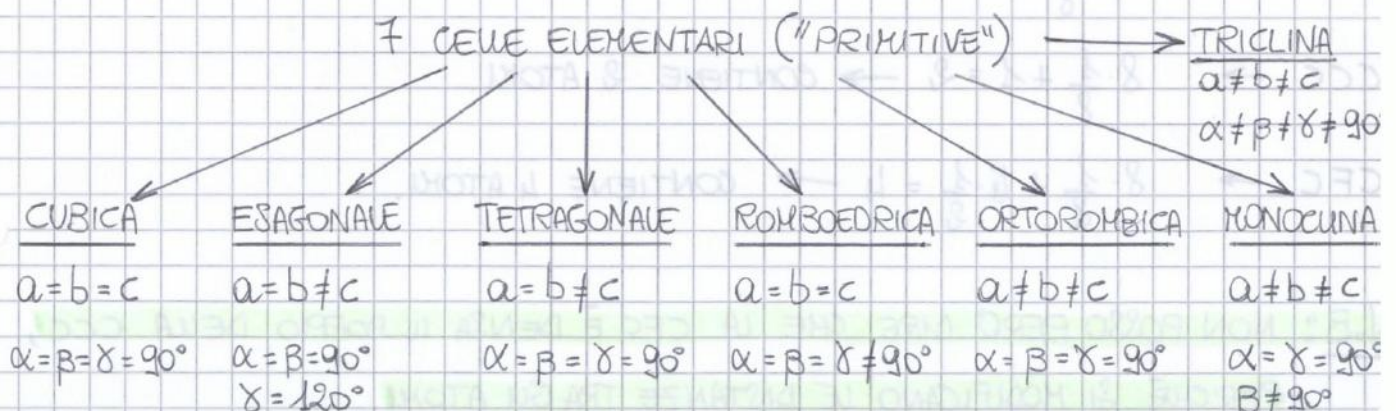 7 CELLE ELEMENTARI ("PRIMITIVE")
TRICLINA
a≠b≠c
α≠β≠γ≠90
CUBICA
a=b=c
α=β=γ=90°
ESAGONALE
a=b≠c
α=β=90°
γ=120°
TETRAGONALE
a=b≠c
α=β=γ=90°
ROMBOEDRICA
a=b=c
α=β=γ≠90°
ORTOROMBICA
a≠b≠c
α=β=γ=90°
MONOCLINA
a≠b≠c
α=γ=90°
β≠90°